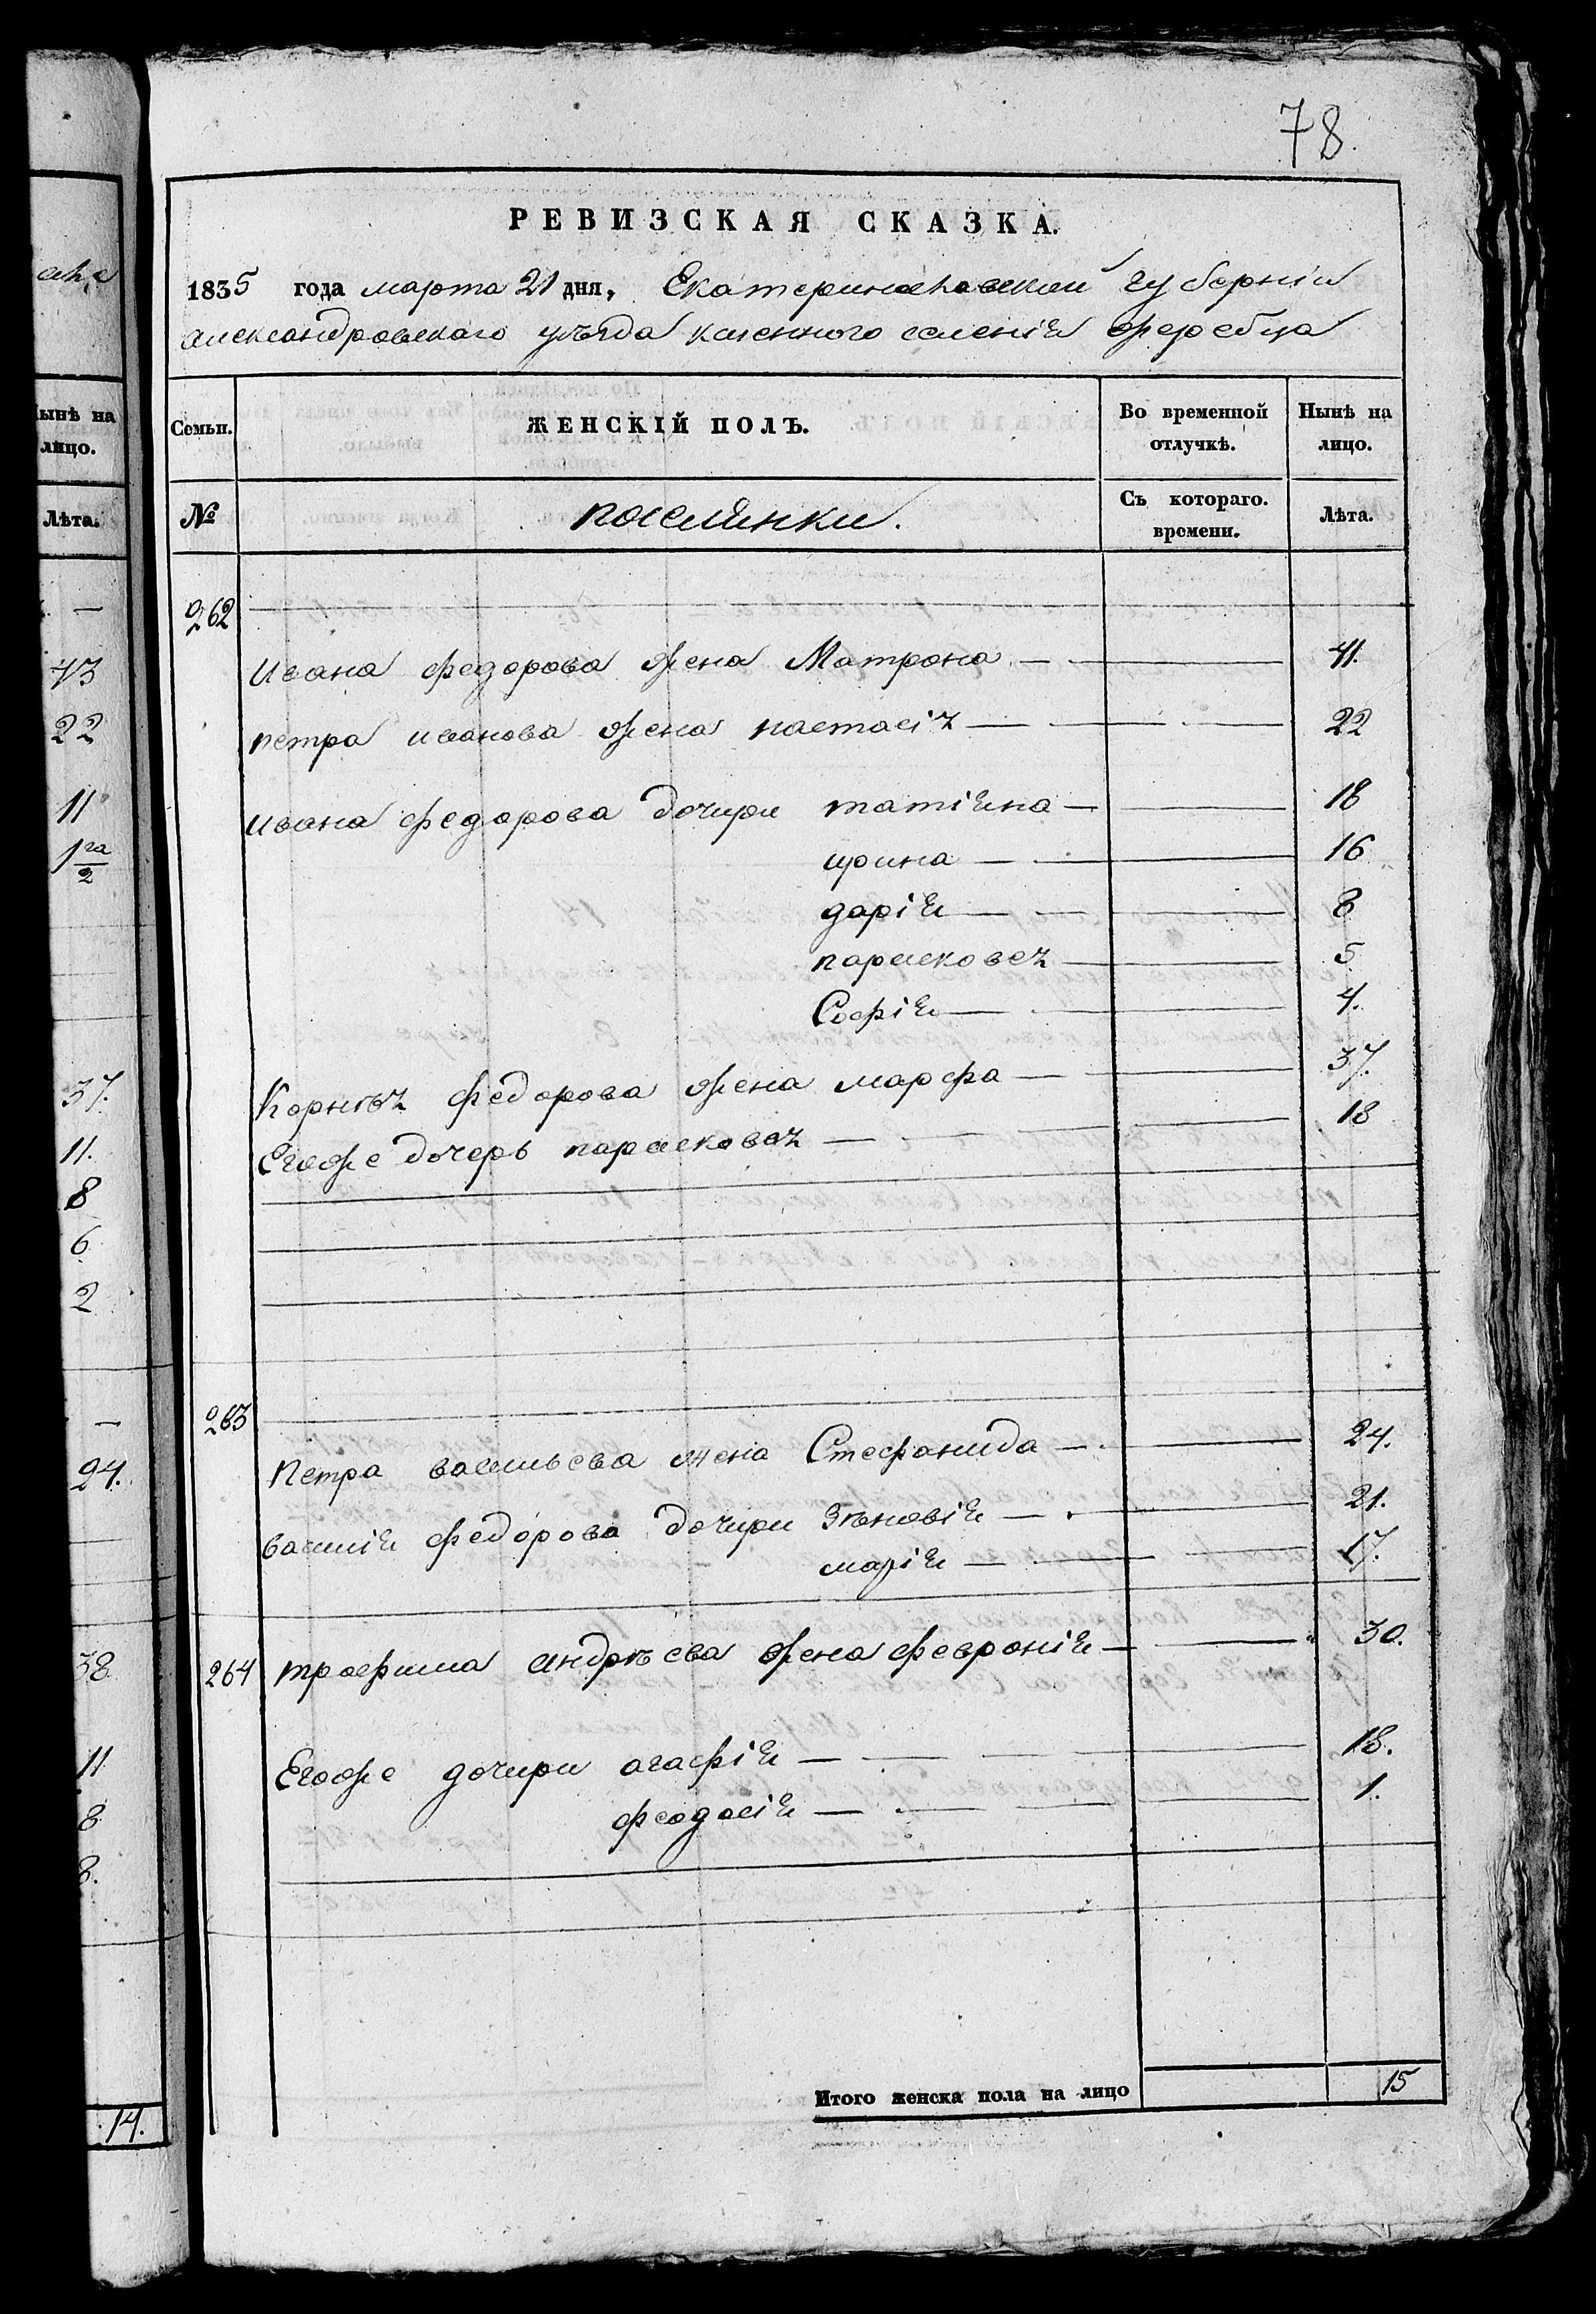 78.
РЕВИЗСКАЯ СКАЗКА.
1835 года марта 21 дня, Екатеринославской губерніи
александровскаго уѣзда казенного селенія жеребца
Семьи.
ЖЕНСКІЙ ПОЛЪ.
Во временной отлучкѣ.
Нынѣ на лицо.
№
поселянки.
Съ котораго времени.
Лѣта.
262
Ивана федорова жена Матрона 41.
петра иванова жена настасія 22
ивана федорова дочери татіяна 18
ирина 16
дарія 8
парасковея 5
Софія 4.
Корнѣя федорова жена марфа 37.
Егоже дочерь парасковея 18
263
Петра васильева жена Стефанида 24.
василія федорова дочери Зѣновія 21.
марія 17.
264 трофима андрѣева жена февронія 30.
Егоже дочери агафія 18.
феодосія 1.
Итого женска пола на лицо 15
ынѣ на
лицо.
Лѣта.
43
22
11
1 га/2
37.
11.
8
6
2
24.
38
11
8
8.
14.